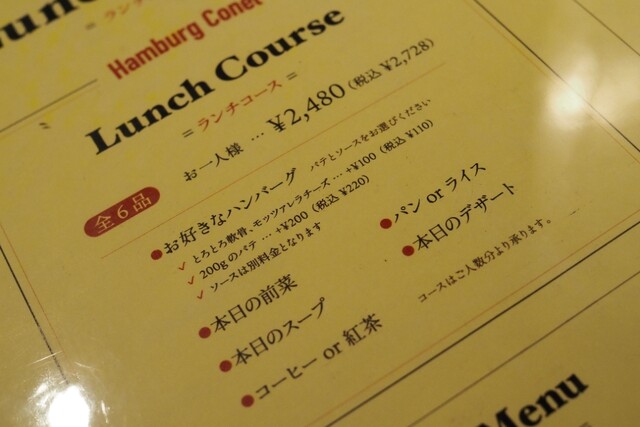 Hamburg Conet
Lunch Course
= ランチコース =
お一人様 … ¥2,480 (税込 ¥2,728)
全6品
●お好きなハンバーグ パテとソースをお選びください
✓ とろとろ軟骨、モッツァレラチーズ … +¥100 (税込 ¥110)
✓ 200gのパテ … +¥200 (税込 ¥220)
✓ ソースは別料金となります
●本日の前菜
●本日のスープ
●コーヒー or 紅茶
●パン or ライス
●本日のデザート
コースはご人数分より承ります。
Menu